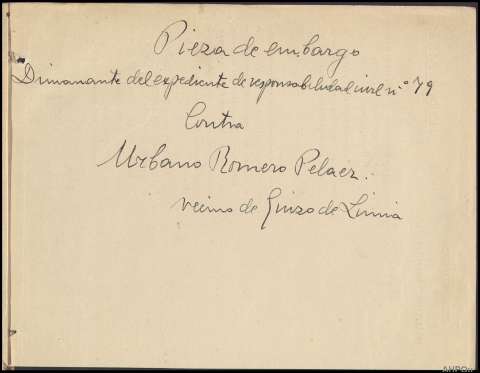 Pieza de embargo
Dimanante del expediente de responsabilidad civil n.º 79
Contra
Urbano Romero Pelaez.
vecino de Ginzo de Limia